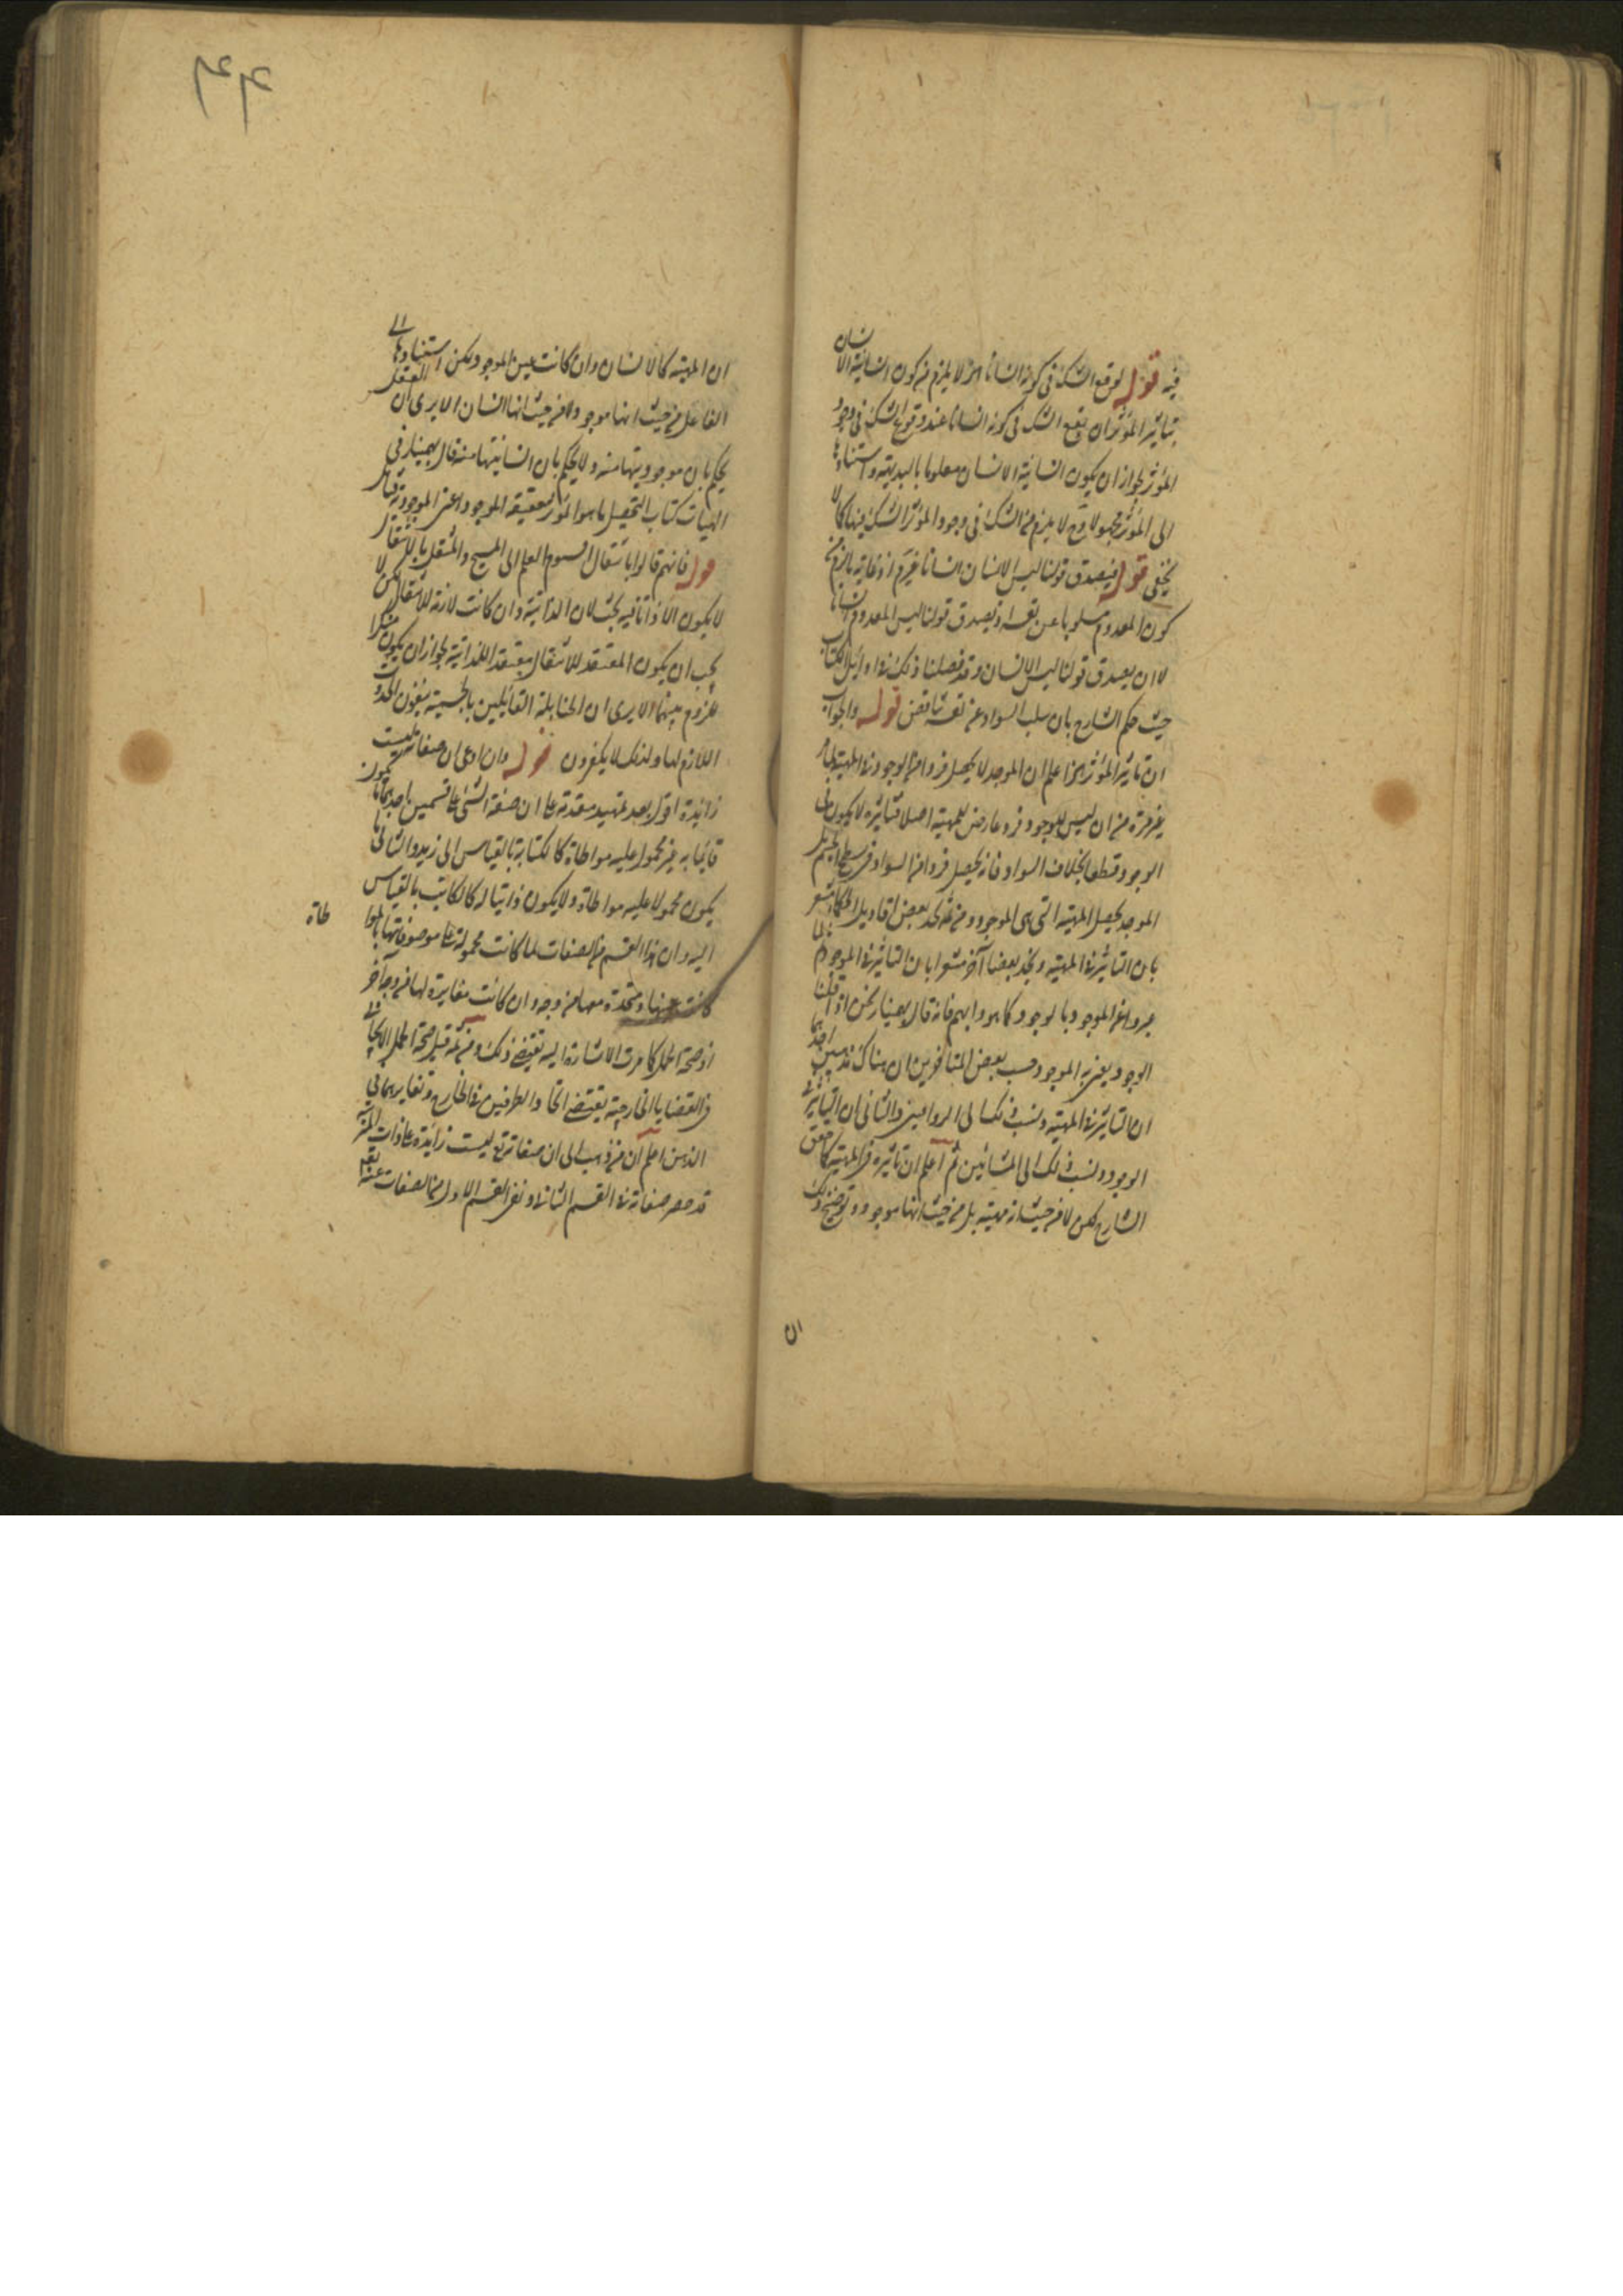 فيه قوله لوقع الشك في كونه انسانا اه لا يلزم من كون انسانية الانسان
بتاثير المؤثر ان يقع الشك في كونه انسانا عند وقوع الشك في وجود
المؤثر لجواز ان يكون انسانية الانسان معلوما بالبديهة واستنادها
الى المؤثر مجهولا وح لا يلزم من الشك في وجود المؤثر الشك فيها كما لا
يخفى قوله فيصدق قولنا ليس الانسان انسانا غير م اذ غاية ما لزم
كون المعدوم مسلوبا عن نفسه ويصدق قولنا ليس المعدوم انسانا
لا ان يصدق قولنا ليس الانسان وقد فصلنا ذلك في اوايل الكتاب
حيث حكم الشارح بان سلب السواد عن نفسه تناقض قوله والجواب
ان تاثير المؤثر اه اعلم ان الموجد لا يحصل فردا من الوجود في المهية لما
غير مرة من ان ليس للوجود فرد عارض للمهية اصلا فتاثيره لا يكون في
الوجود قطعا بخلاف السواد فانه يحصل فردا من السواد في سطح الجسم بل
الموجد يحصل المهية التي هي الموجود ومن ثمه تجد بعض اقاويل الحكما مشعر
بان التاثير في المهية وتجد بعضا آخر مشعرا بان التاثير في الموجود
عبروا عن الموجود بالوجود كما هو دابهم فانه قال بهمنيار نحن اذا قلنا
الوجود يعني به الموجود حسب بعض المتاخرين ان هناك مذهبين احدهما
ان التاثير في المهية ونسب ذلك الى الرواقيين والثاني ان التاثير في
الوجود ونسب ذلك الى المشائين ثم اعلم ان تاثيره في المهية كما حقق
الشارح لكن لا من حيث انه مهية بل من حيث انها موجود وتوضيح ذلك
ان
ان المهية كالانسان وان كانت عين الموجود ولكن استنادها الى
الفاعل من حيث انها موجود لا من حيث انها انسان الا يرى ان العقل
يحكم بان موجوديتها منه ولا يحكم بان انسانيتها منه قال بهمنيار في
الهيات كتاب التحصيل ما هو المؤثر حقيقة الموجود اعني الموجودية
قوله فانهم قالوا بانتقال اقنوم العلم الى المسيح والمنتقل بالاستقلال
لا يكون الا ذاتا فيه بحث لان الذاتية وان كانت لازمة للانتقال لكن لا
يجب ان يكون المعتقد للانتقال معتقدا للذاتية لجواز ان يكون منكرا
للزوم بينهما الا يرى ان الحنابلة القائلين بالجسمية ينفون الحدوث
اللازم لها ولذلك لا يكفرون قوله وان ادعى ان صفاته ليست
زايدة اقول بعد تمهيد مقدمة هي ان صفة الشيء على قسمين احدهما ما يكون
قائما به غير محمول عليه مواطاة كالكتابة بالقياس الى زيد والثاني ما
يكون محمولا عليه مواطاة ولا يكون ذاتيا له كالكاتب بالقياس
اليه وان هذا القسم من الصفات لما كانت محمولة على موصوفاتها بالمواطاة
كانت عينها ومتحدة معها من وجه وان كانت مغايرة لها من وجه آخر
اذ صحة الحمل كما مرت الاشارة اليه تقتضي ذلك ومن ثمه قيل صحة الحمل الايجابي
في القضايا الخارجية يقتضي اتحاد الطرفين في الخارج وتغايرهما في
الذهن اعلم ان من ذهب الى ان صفاته تع ليست زايدة على ذاته
قد حصر صفاته في القسم الثاني ونفى القسم الاول من الصفات عنه